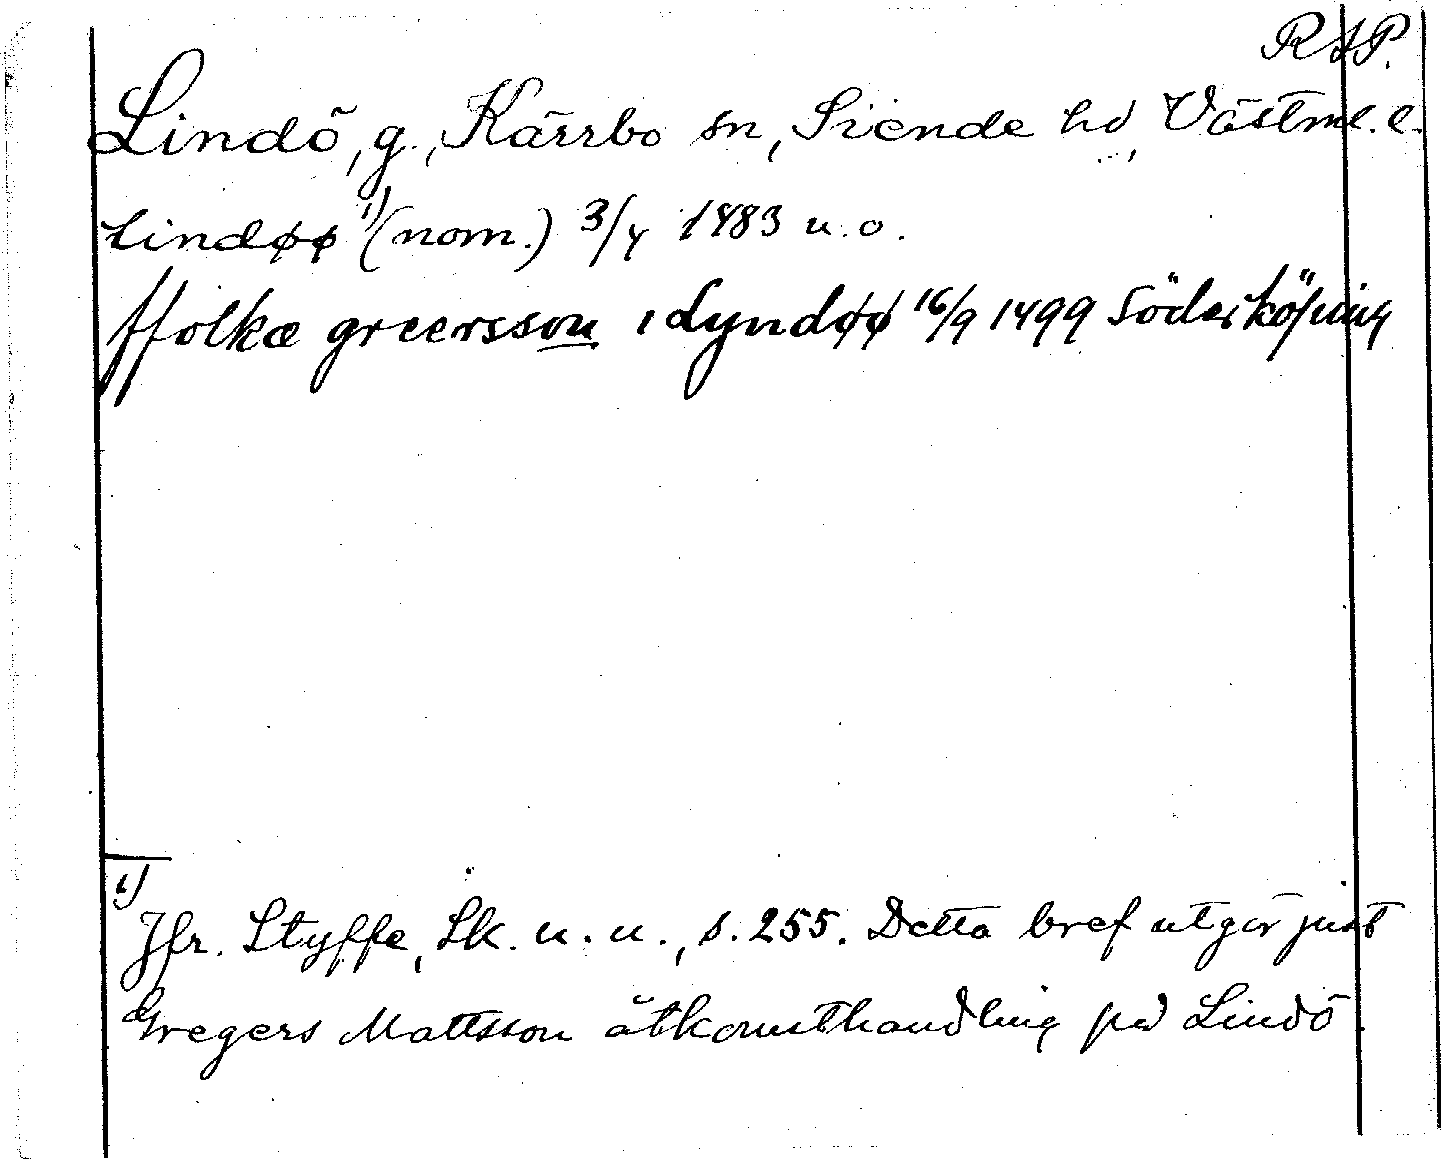 RAP.
Lindö, g., Kärrbo sn, Siende hd, Västml. l.
lindøø ¹⁾ (nom.) 3/4 1483 u. o.
ffolkæ greersson i lyndøø 16/9 1499 Söderköping
¹⁾ Jfr. Styffe, Sk. u. u., s. 255. Detta bref utgör just
Gregers Mattsson åtkomsthandling på Lindö.